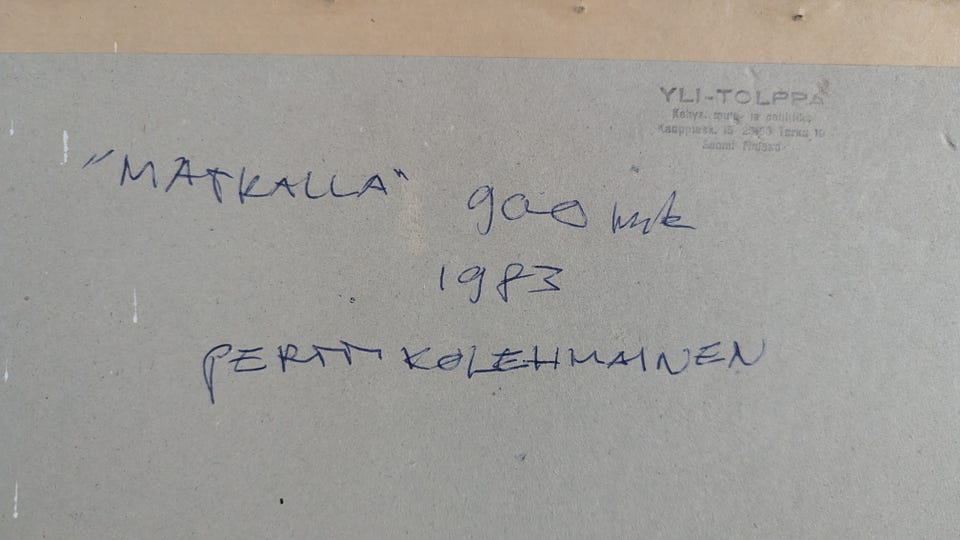 YLI-TOLPPA
Kehys, 
15 Turku 10
Suomi Finland
"MATKALLA" 900 mk
1983
PERTTI KOLEHMAINEN